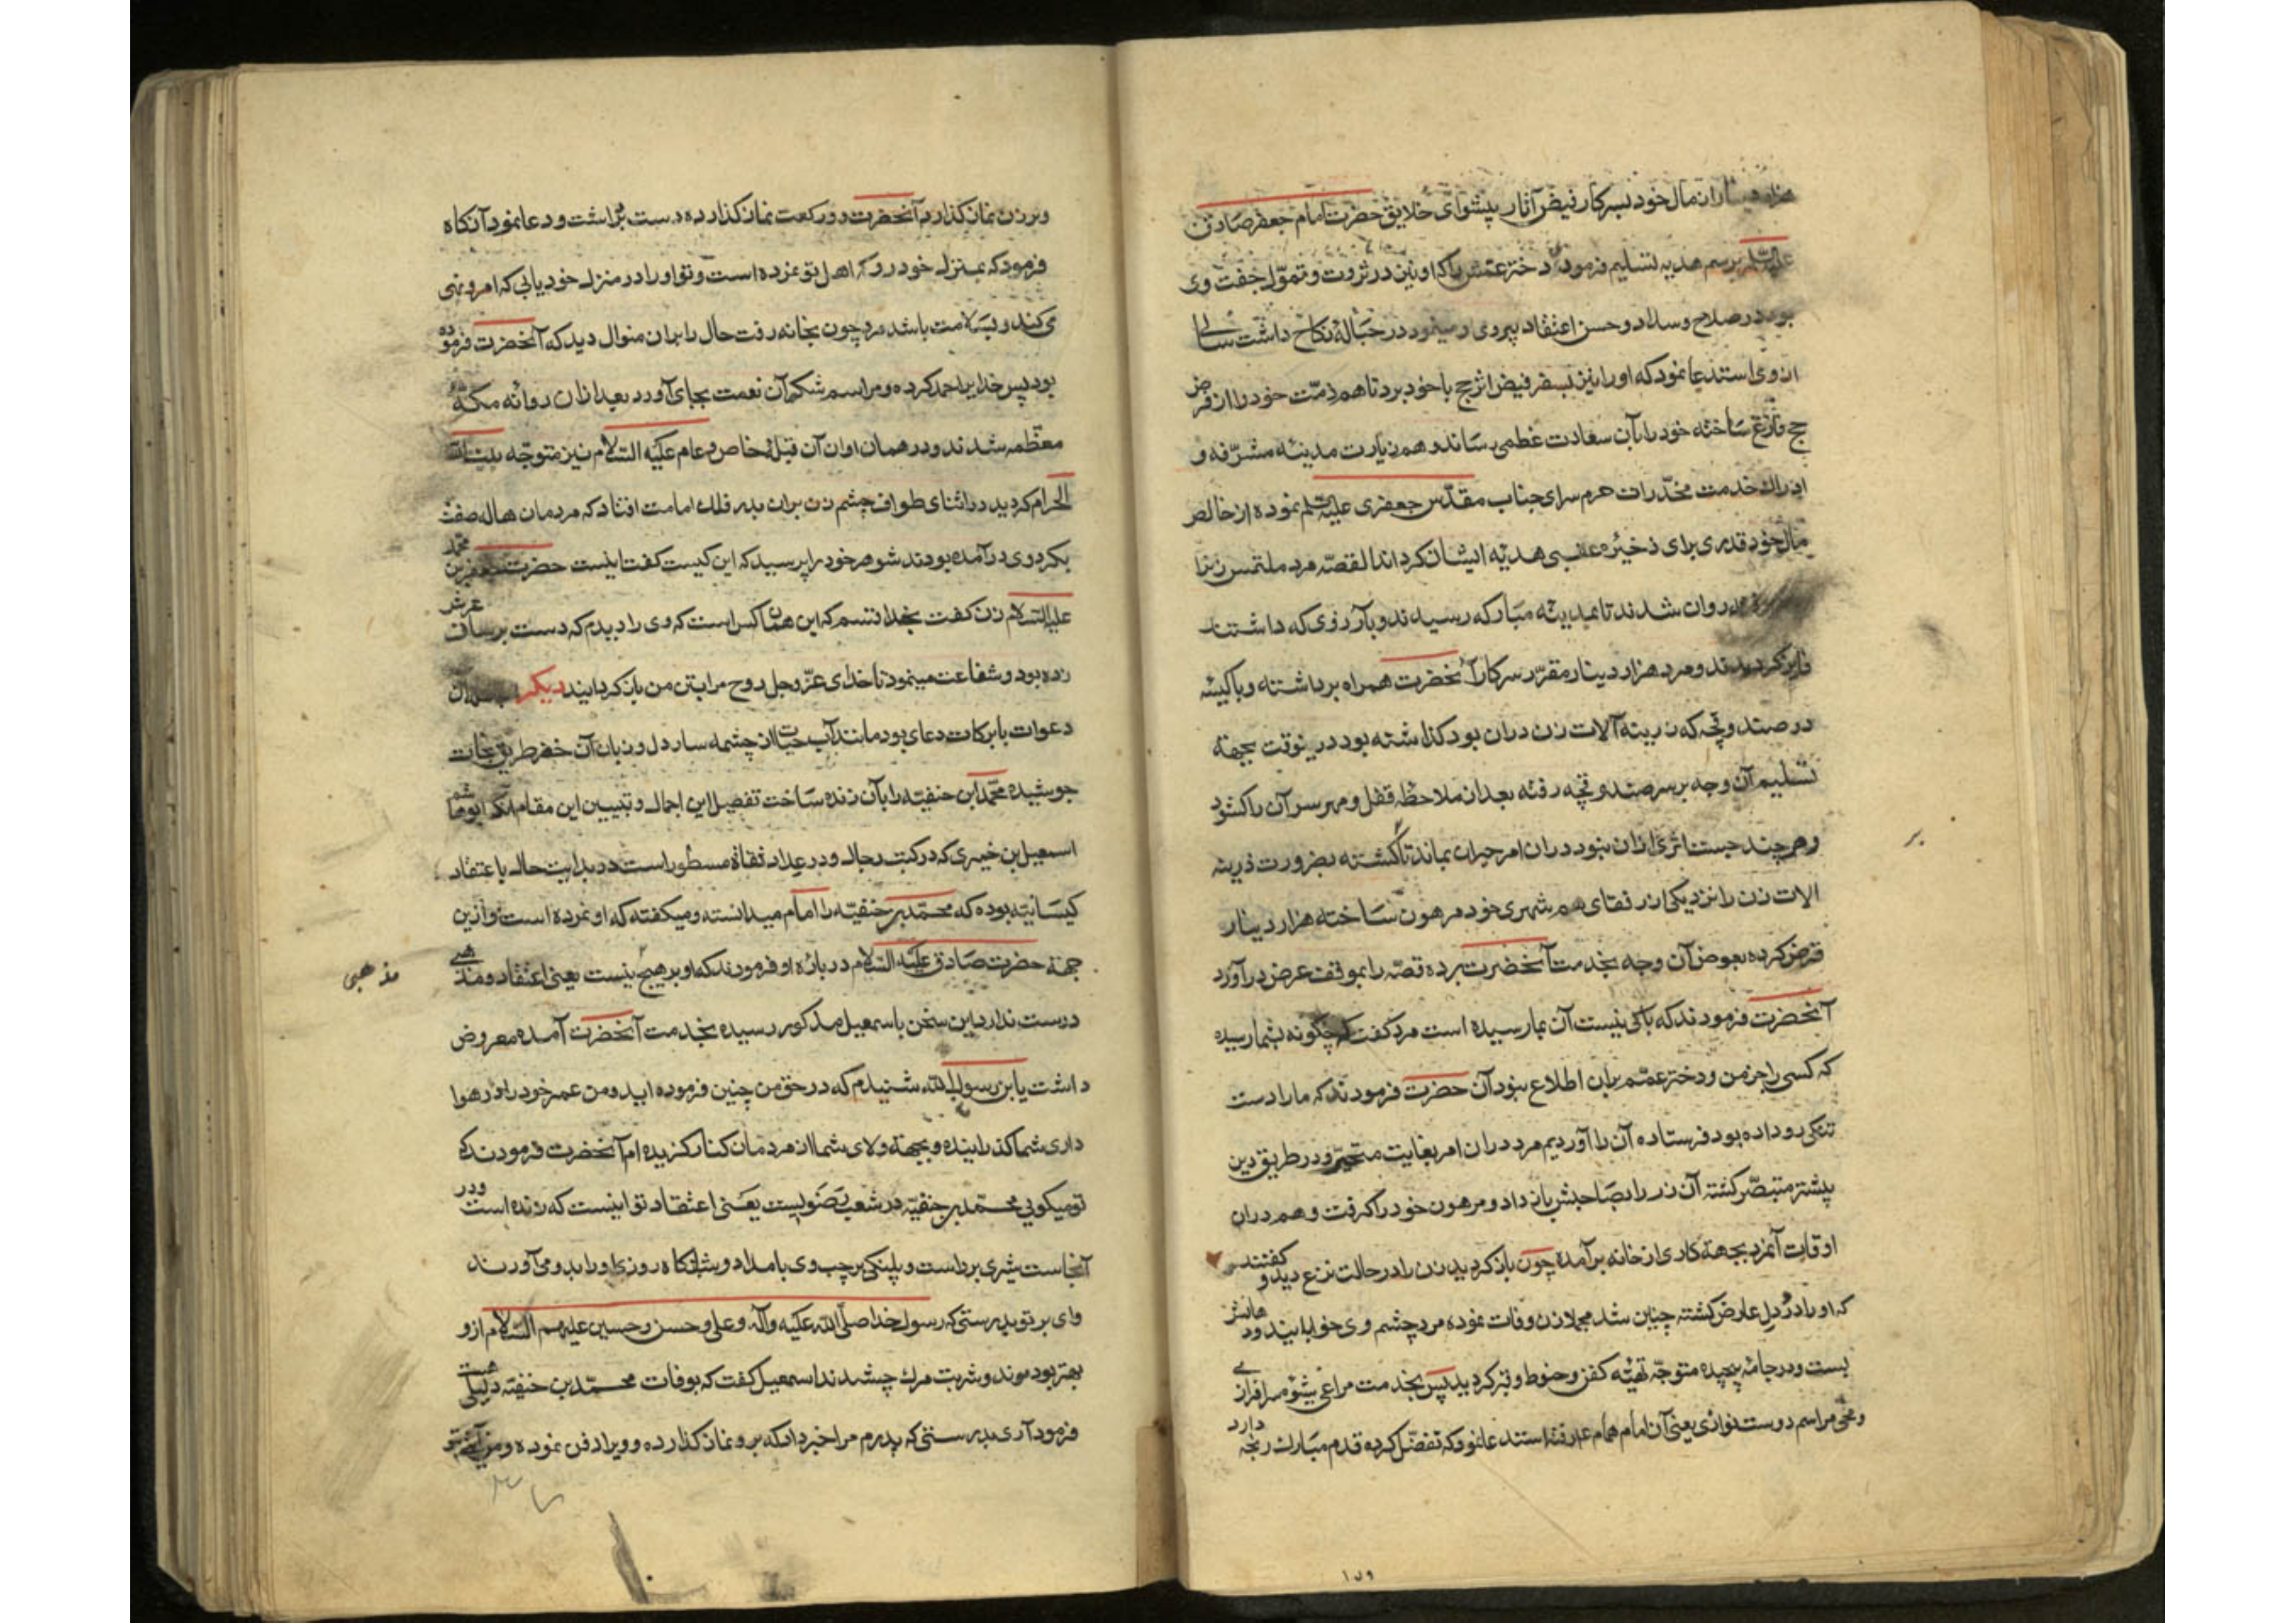 هزار دینار از مال خود بسرکار فیض آثار پیشوای خلایق حضرت امام جعفر صادق
علیه السلام برسم هدیه تسلیم فرمود دختر عمّش را که او نیز در ثروت و تموّل جفت وی
بود در صلاح و سداد و حسن اعتقاد پیروی وی مینمود در حبالۀ نکاح داشت سالی
از وی استدعا نمود که او را نیز بسفر فیض اثر حج با خود برد تا هم ذمّت خود را از فرض
حج فارغ ساخته خود را بآن سعادت عظمی رساند و هم زیارت مدینه مشرّفه و
ادراک خدمت مخدّرات حرم سرای جناب مقدّس جعفری علیه السلم نموده از خالص
مال خود قدری برای ذخیره عقبی هدیّه ایشان کرداند القصّه مرد ملتمس زن را
روان شدند تا بمدینه مبارکه رسیدند و بآرزوی که داشتند
فایز کردیدند و مرد هزار دینار مقرّر سرکار آنحضرت همراه برداشته و با کیسه
در صندوقچه که زرینه آلات زن در آن بود کذاشته بود درینوقت بجهة
تسلیم آن وجه بر سر صندوقچه رفته بعد از ملاحظه قفل و مهر سر آن را کشود
و هر چند جست اثری از آن نبود در آن امر حیران بماند تا کشته بضرورت زرینه
الات زن را نزد یکی از رفقای هم شهری خود مرهون ساخته هزار دینار
قرض کرده بعوض آن وجه بخدمت آنحضرت برده قصّه را بموقف عرض درآورد
آنحضرت فرمودند که باکی نیست آن بما رسیده است مرد کفت که چکونه بشما رسیده
که کسی را جز من و دختر عمّم بر آن اطلاع نبود آن حضرت فرمودند که ما را دست
تنکی رو داده بود فرستاده آن را آوردیم مرد در آن امر بغایت متحیّر و در طریق دین
پیشتر متبصّر کشته آن زر را بصاحبش باز داد و مرهون خود را کرفت و هم در آن
اوقات آنمرد بجهة کاری از خانه برآمده چون باز کردید زن را در حالت نزع دید و کفتند
که او را درد دل عارض کشته چنین شد مجملا زن وفات نموده مرد چشم وی خوابانید و دهانش
بست و در جامه پیچیده متوجّه تهیّه کفن و حنوط و قبر کردید پس بخدمت مراعی شیوه سرافرازی
و محیی مراسم دوست نوازی یعنی آن امام همام علیه رفته استدعا نمود که تفضّل کرده قدم مبارک رنجه دارد
بر
١٥٩
و بر زن نماز کذارد آنحضرت دو رکعت نماز کذارده دست برداشت و دعا نمود آنکاه
فرمود که بمنزل خود رو که اهل تو نمرده است و تو او را در منزل خود یابی که امر و نهی
می کند و بسلامت باشد مرد چون بخانه رفت حال را بر آن منوال دید که آنحضرت فرموده
بود پس خدا را حمد کرده و مراسم شکر آن نعمت بجای آورد بعد از آن روانه مکّۀ
معظمه شدند و در همان اوان آن قبلۀ خاص و عام علیه السلام نیز متوجّه بیت الله
الحرام کردید در اثنای طواف چشم زن بر آن بدر فلک امامت افتاد که مردمان هاله صفت
بکرد وی درآمده بودند شوهر خود را پرسید که این کیست کفت اینست حضرت جعفر بن محمد
علیه السلام زن کفت بخدا قسم که این همان کس است که وی را دیدم که دست بر ساق عرش
زده بود و شفاعت مینمود تا خدای عزّ و جل روح مرا بتن من باز کردانید دیکر
دعوات با برکات دعای بود مانند آب حیات از چشمه سار دل و زبان آن خضر طریق نجات
جوشیده محمّد ابن حنفیّه را بآن زنده ساخت تفصیل این اجمال و تبیین این مقام آنکه ابو هاشم
اسمعیل بن حمیری که در کتب رجال و در عداد ثقاة مسطور است در بدایت حال با عتقاد
کیسانیّه بوده که محمّد بن حنفیّه را امام میدانسته و میکفته که او نمرده است و از این
جهة حضرت صادق علیه السلام در باره او فرمودند که او بر هیچ نیست یعنی اعتقاد و مذهبی
مذهبی
درست ندارد این سخن باسمعیل مذکور رسیده بخدمت آنحضرت آمده معروض
داشت یا بن رسول الله شنیدم که در حق من چنین فرموده اید و من عمر خود را در هوا
داری شما کذرانیده و بجهة ولای شما از مردمان کنار کزیده ام آنحضرت فرمودند که
تو میکویی محمّد بن حنفیّه در شعب رضویست یعنی اعتقاد تو اینست که زنده است و در
آنجاست شیری بر راست و پلنکی بر چپ وی بامداد و شبانکاه روزی او را بدو می آورند
وای بر تو بدرستی که رسول خدا صلّی الله علیه و آله و علی و حسن و حسین علیهم السلام از و
بهتر بودند موند و شربت مرک چشیدند اسمعیل کفت که بوفات محمّد بن حنفیّه دلیلی هست
فرمود آری بدرستی که پدرم مرا خبر داد که بر و نماز کذارده و ویرا دفن نموده و من